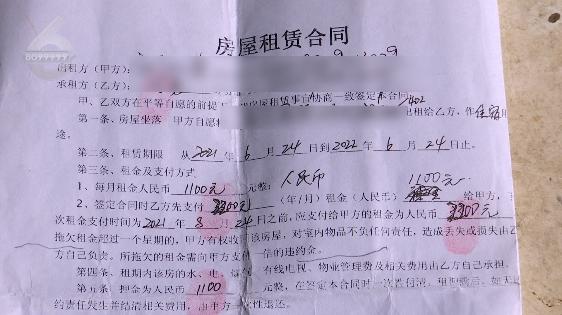 房屋租赁合同
出租方（甲方）：
承租方（乙方）：
甲、乙双方在平等自愿的前提 房屋租赁事宜协商一致签定本合同
第一条、房屋坐落 甲方自愿 出租给乙方，作住宿用
途。
第二条、租赁期限 从2021年6月24日到2022年6月24日止。
第三条、租金及支付方式
1、每月租金人民币 1100元 元整； 人民币 1100元
2、签定合同时乙方先支付 3300元 （年/月）租金（人民币） 给甲方，下
次租金支付时间为2021年8月24日之前，应支付给甲方的租金为人民币 3300元
拖欠租金超过一个星期的，甲方有权收回该房屋，对室内物品不负任何责任，造成丢失或损失由乙
方自己负责。所拖欠的租金需向甲方支付一倍的违约金。
第四条、租期内该房的水、电、煤气、有线电视、物业管理费及相关费用由乙方自己承担。
第五条、押金为人民币 1100 元整，在签定本合同时一次性付清，租赁期后，如无违
约责任发生并结清相关费用，由甲方一次性退还。